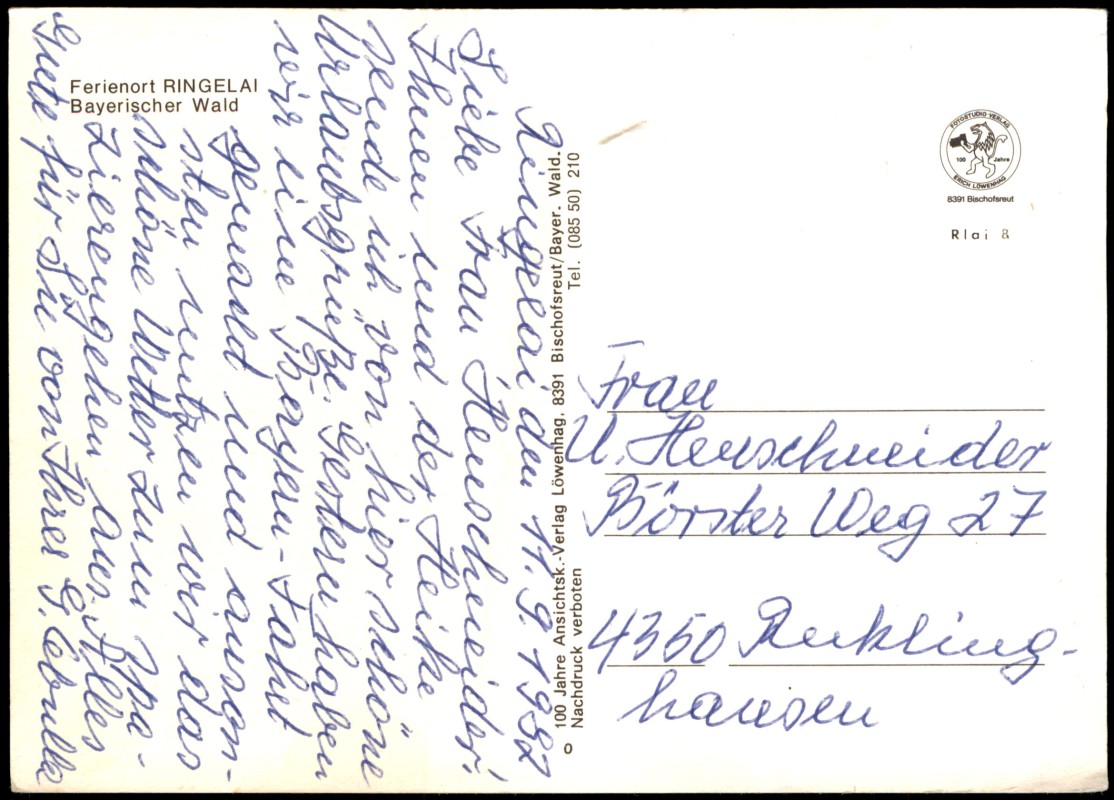 Ferienort RINGELAI
Bayerischer Wald
Ringelai den 11.9.1982
Liebe Frau Henschneider!
Ihnen und der Heike
sende ich von hier schöne
Urlaubsgrüße. Gestern haben
wir eine Bayern-Fahrt
gemacht und anson-
sten nutzen wir das
schöne Wetter zum Spa-
zierengehen aus. Alles
Gute für Sie von Ihrer G.
100 Jahre Ansichtsk.-Verlag Löwenhag, 8391 Bischofsreut/Bayer. Wald.
Nachdruck verboten
Tel. (085 50) 210
FOTOSTUDIO VERLAG
100 Jahre
ERICH LÖWENHAG
8391 Bischofsreut
Rlai 8
Frau
U. Henschneider
Börster Weg 27
4350 Reckling-
hausen